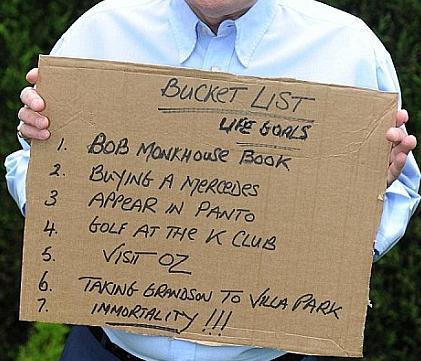 BUCKET LIST
LIFE GOALS
1. BOB MONKHOUSE BOOK
2. BUYING A MERCEDES
3 APPEAR IN PANTO
4. GOLF AT THE K CLUB
5. VISIT OZ
6. TAKING GRANDSON TO VILLA PARK
7. IMMORTALITY!!!